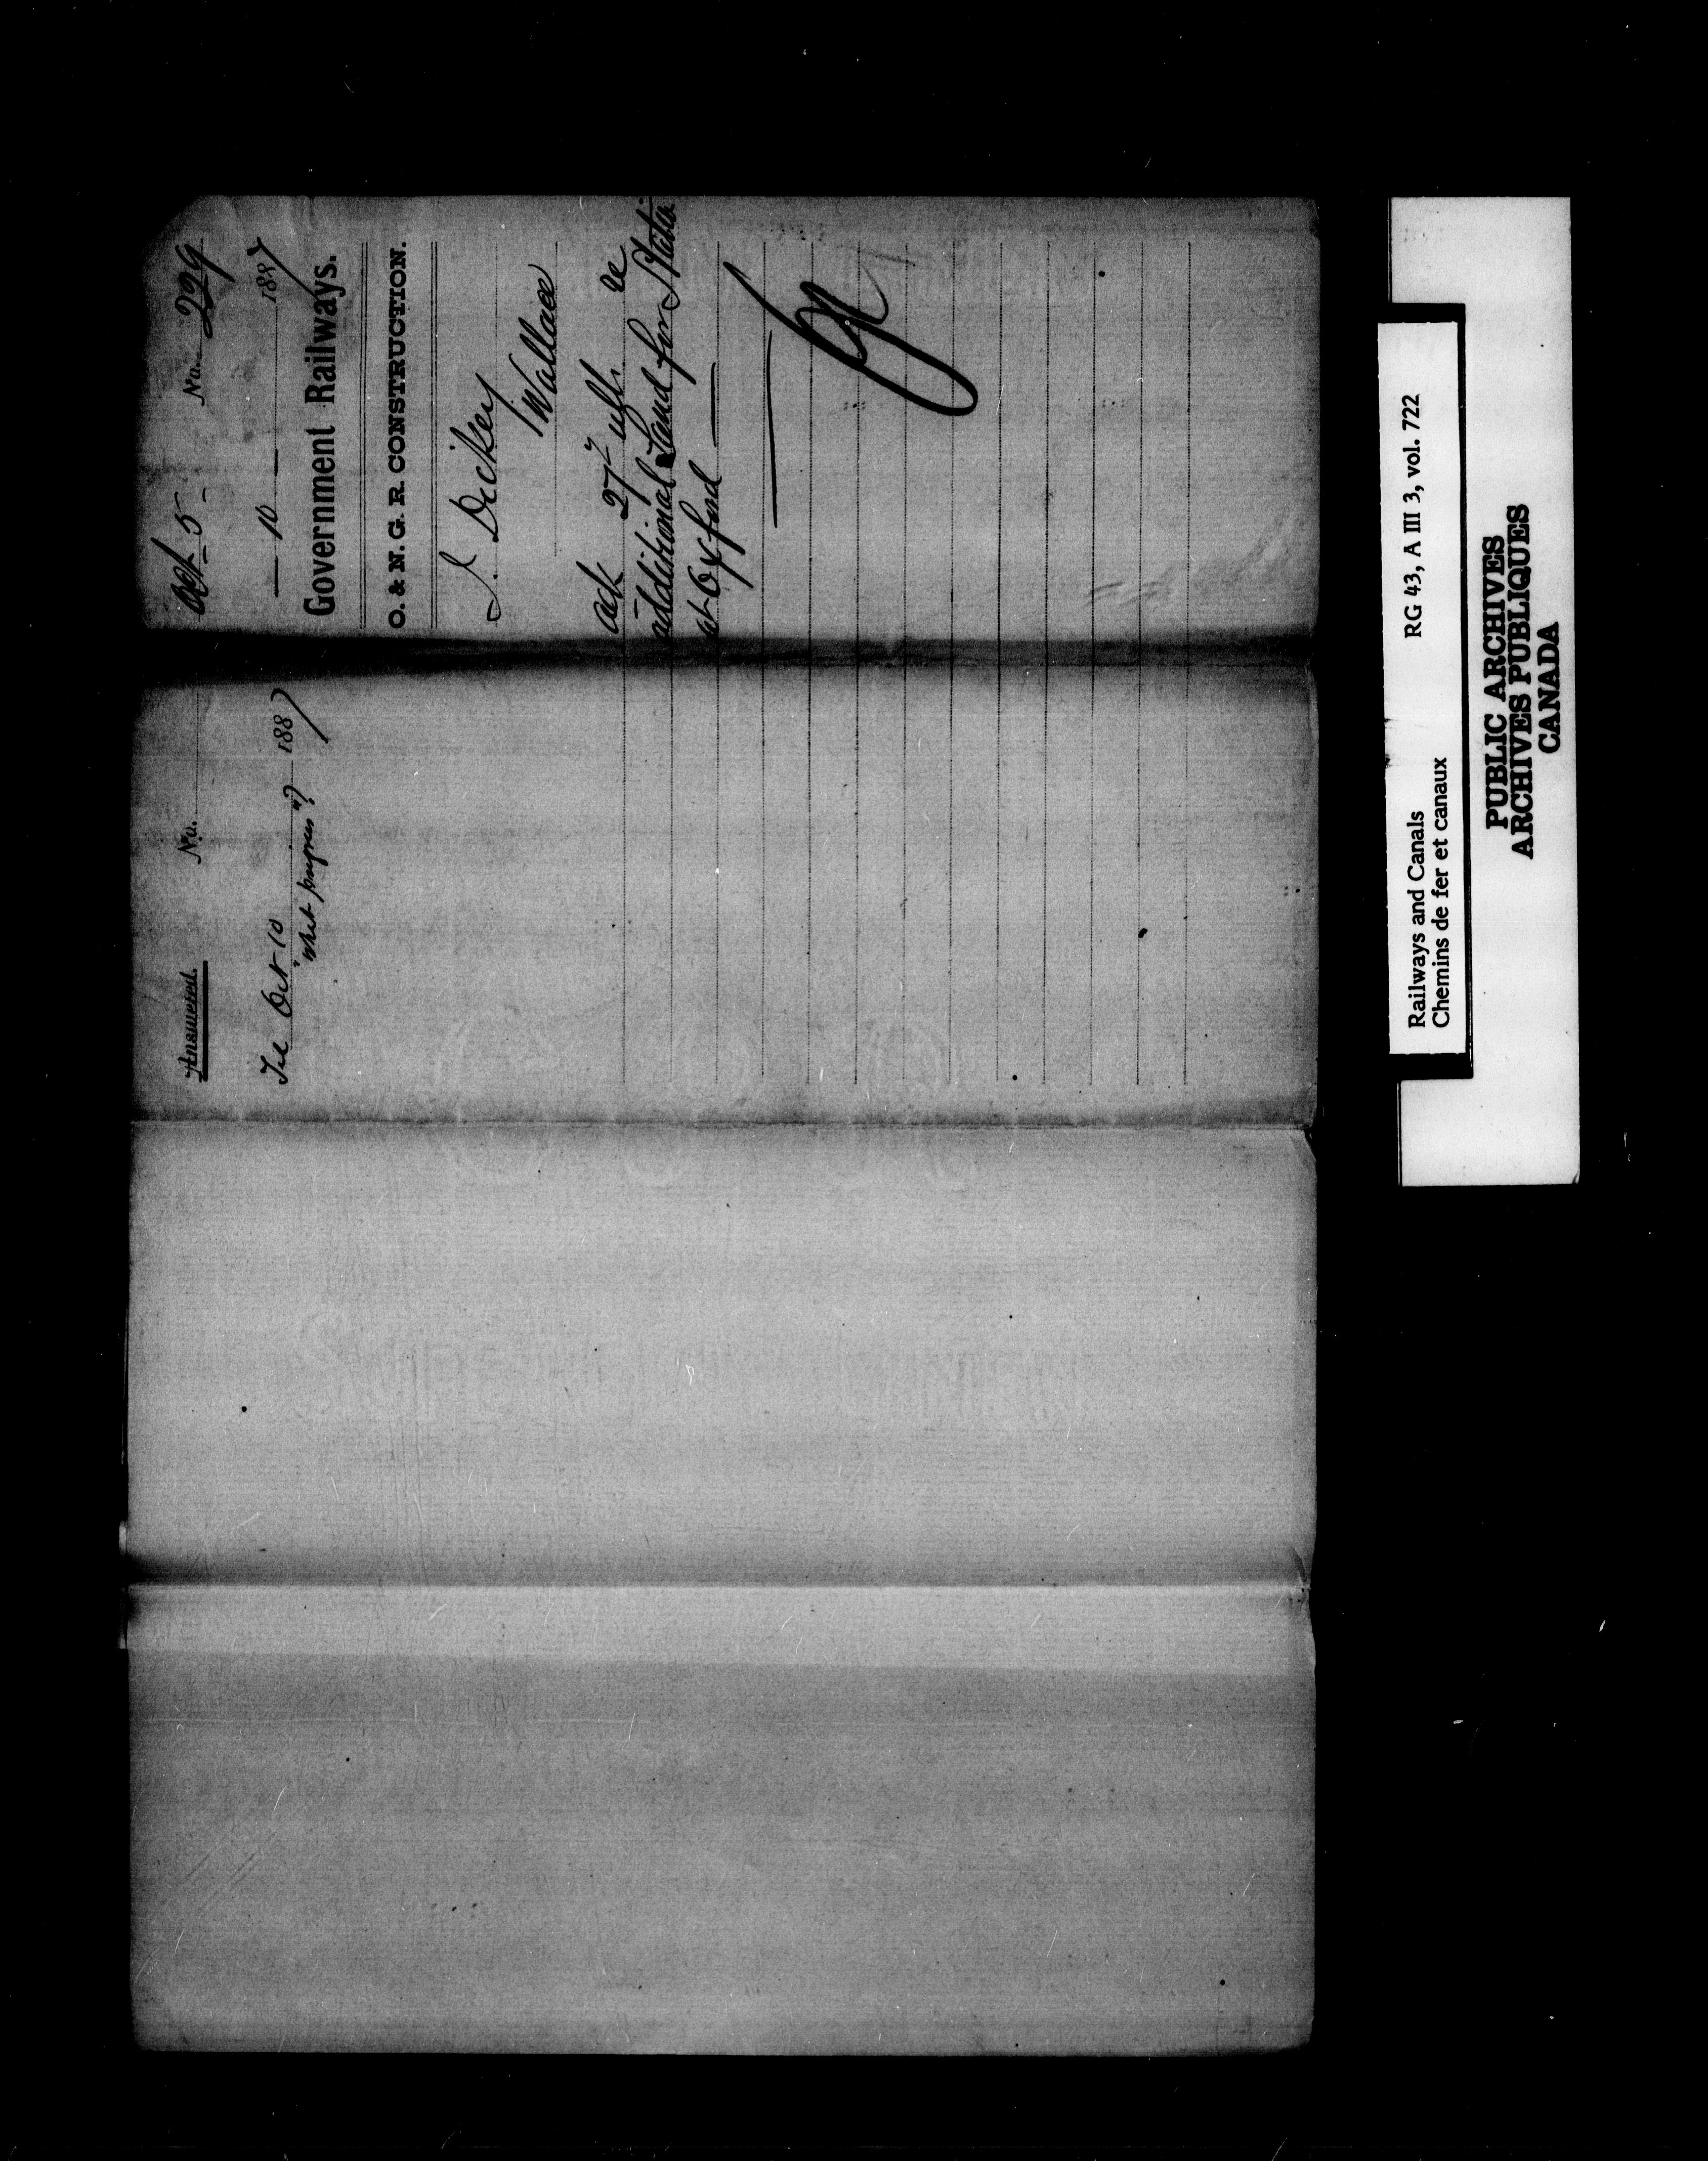 Oct 5 - No. 229
— 10 — 1887
Government Railways.
O. & N. G. R. CONSTRUCTION.
J. Dickey
Wallace
ack 27th ult. re
additional Land for Statio
at Oxford —
Answered. No.
Tel Oct 10 1887
"What purpose"?
Railways and Canals RG 43, A III 3, vol. 722
Chemins de fer et canaux
PUBLIC ARCHIVES
ARCHIVES PUBLIQUES
CANADA